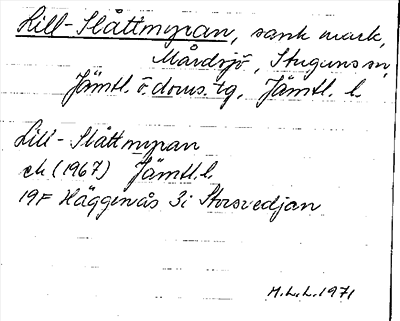 Lill-Slåttmyran, sank mark,
Mårdsjö, Stuguns sn,
Jämtl. ö. doms. tg, Jämtl. l.
Lill-Slåttmyran
ek (1967) Jämtl. l.
19F Häggenås 3i Storsvedjan
M.L.L. 1971